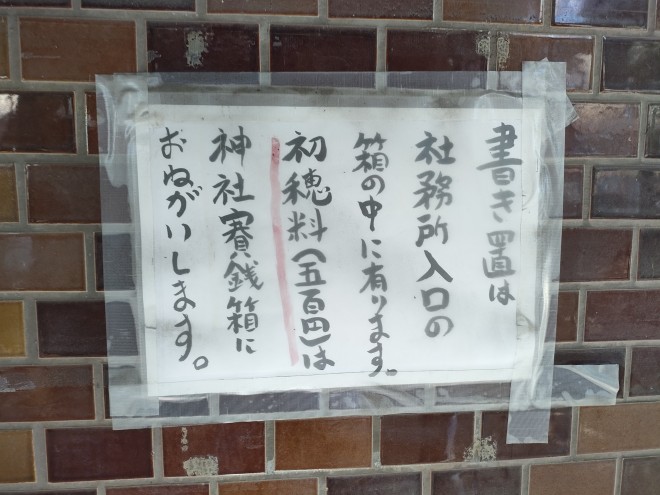 書き置は
社務所入口の
箱の中に有ります。
初穂料(五百円)は
神社賽銭箱に
おねがいします。